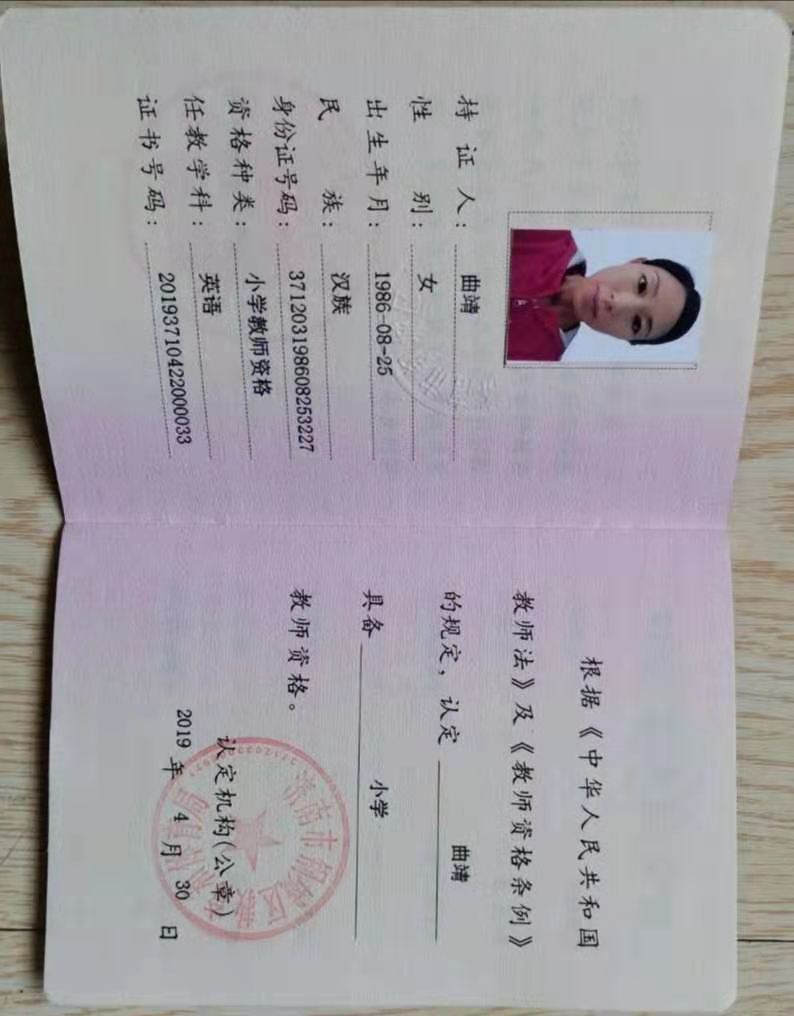 持证人：曲靖
性别：女
出生年月：1986-08-25
民族：汉族
身份证号码：371203198608253227
资格种类：小学教师资格
任教学科：英语
证书号码：20193710422000033
根据《中华人民共和国
教师法》及《教师资格条例》
的规定，认定 曲靖
具备 小学
教师资格。
认定机构(公章)
2019 年 4 月 30 日
济南市